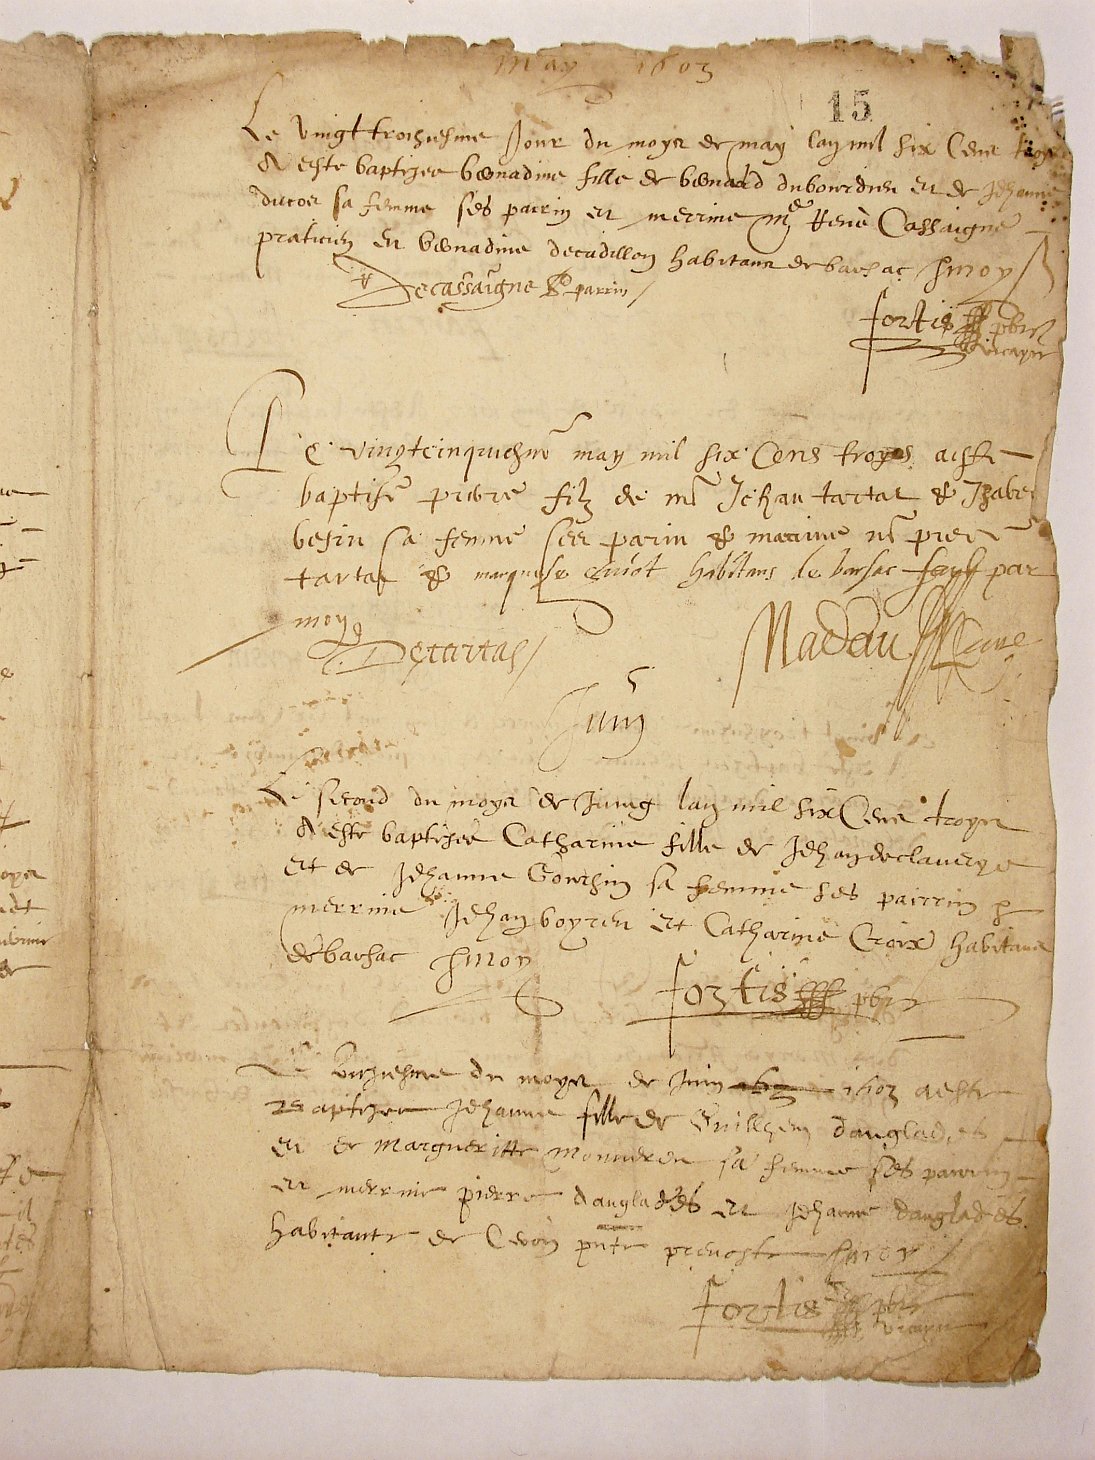 May 1603
15
Le vingt troiziesme Jour du moys de may lan mil six Cens troys
A este baptizee bernadine fille de bernard dubourdieu et de Jehanne
ducos sa femme ses pairin et merrine me René Cassaigne
praticien et bernadine decadillon habitans de barsac
Decassaigne parrin
fortis pbre
vicayre
Le vingtcinquiesme may mil six Cens troys a este
baptisé pierre filz de me Jehan tartas & Izabe
besin sa femme ses parin & marine me pierre
tartas & marquese habitans de barsac faict par
moy
Detartas
Nadau Cure
Juin
Le second du moys de Juing lan mil six Cens troys
A este baptizee Catharine fille de Jehan declaverye
et de Jehanne Gourzin sa femme ses pairrin
merrine Jehan boyreu et Catharine Croix habitans
de barsac
fortis pbre
Le du moys de Juin 1603 a este
Baptizee Jehanne fille de Guilhem danglades
et de Margueritte sa femme ses parrin
et merrine pierre danglades et Jehanne danglades
habitants de pnte prevoste
fortis pbre
vicayre